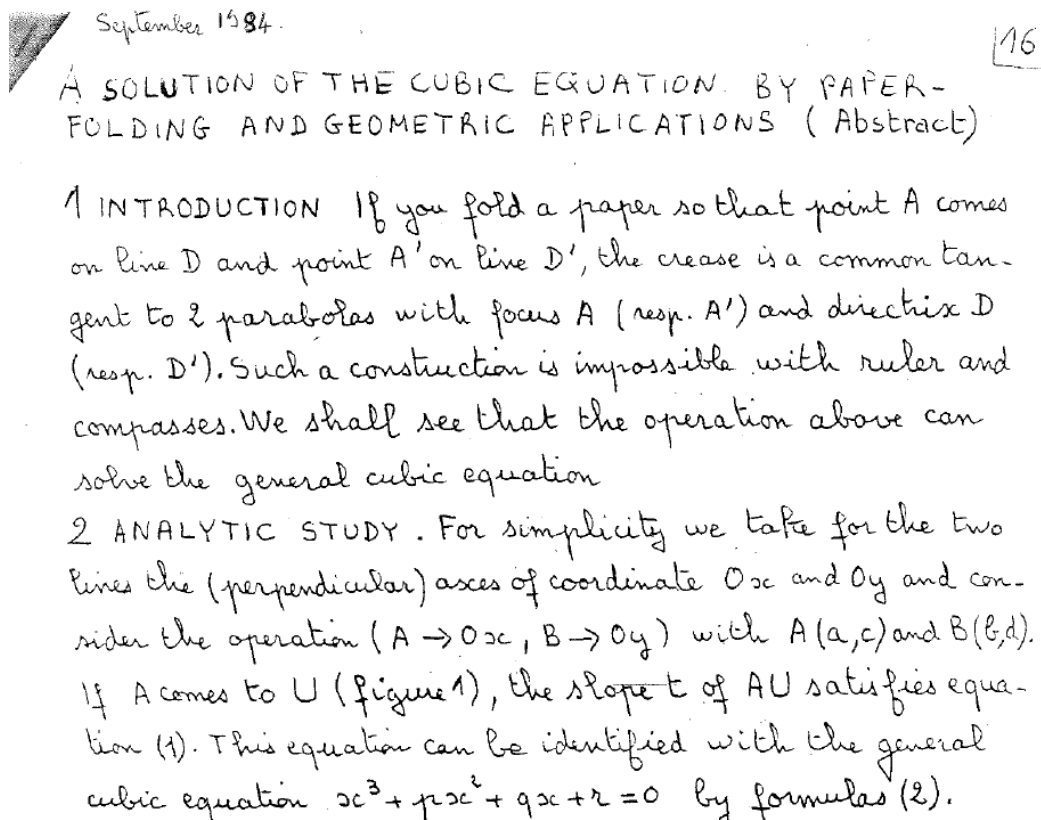 September 1984.
16
A SOLUTION OF THE CUBIC EQUATION BY PAPER-
FOLDING AND GEOMETRIC APPLICATIONS (Abstract)
1 INTRODUCTION If you fold a paper so that point A comes
on line D and point A' on line D', the crease is a common tan-
gent to 2 parabolas with focus A (resp. A') and directrix D
(resp. D'). Such a construction is impossible with ruler and
compasses. We shall see that the operation above can
solve the general cubic equation
2 ANALYTIC STUDY. For simplicity we take for the two
lines the (perpendicular) axes of coordinate Ox and Oy and con-
sider the operation (A → Ox, B → Oy) with A(a,c) and B(b,d).
If A comes to U (figure 1), the slope t of AU satisfies equa-
tion (1). This equation can be identified with the general
cubic equation x³ + px² + qx + r = 0 by formulas (2).